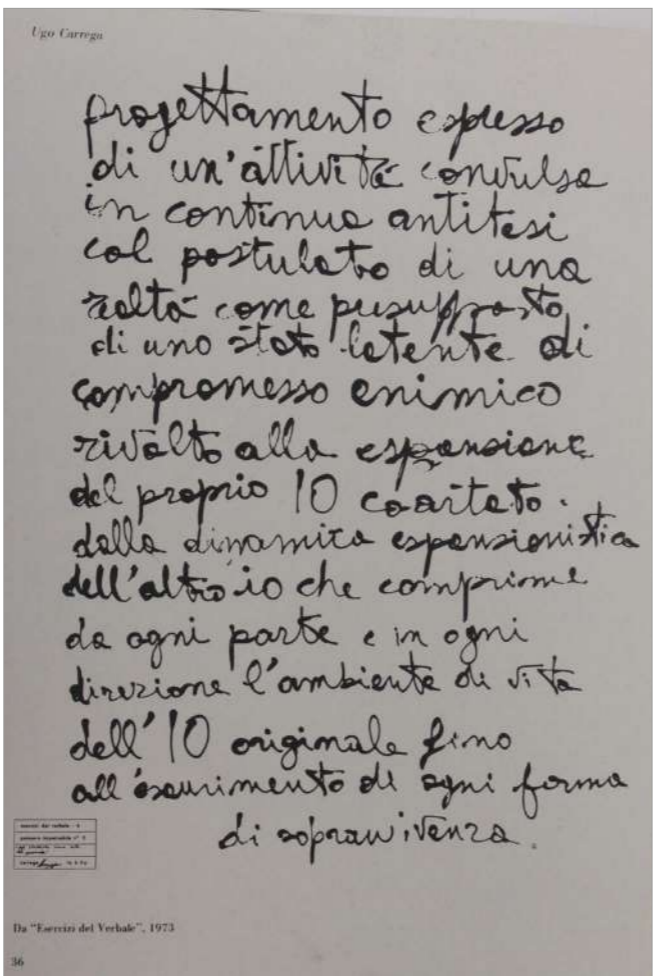 Ugo Carrega
progettamento espresso
di un'attività convulsa
in continua antitesi
col postulato di una
realtà come presupposto
di uno stato latente di
compromesso animico
rivolto alla espansione
del proprio IO coartato.
dalla dinamica espansionistica
dell'altro io che comprime
da ogni parte e in ogni
direzione l'ambiente di vita
dell'IO originale fino
all'esaurimento di ogni forma
di sopravvivenza.
esercizi del verbale - 6
Da "Esercizi del Verbale", 1973
36